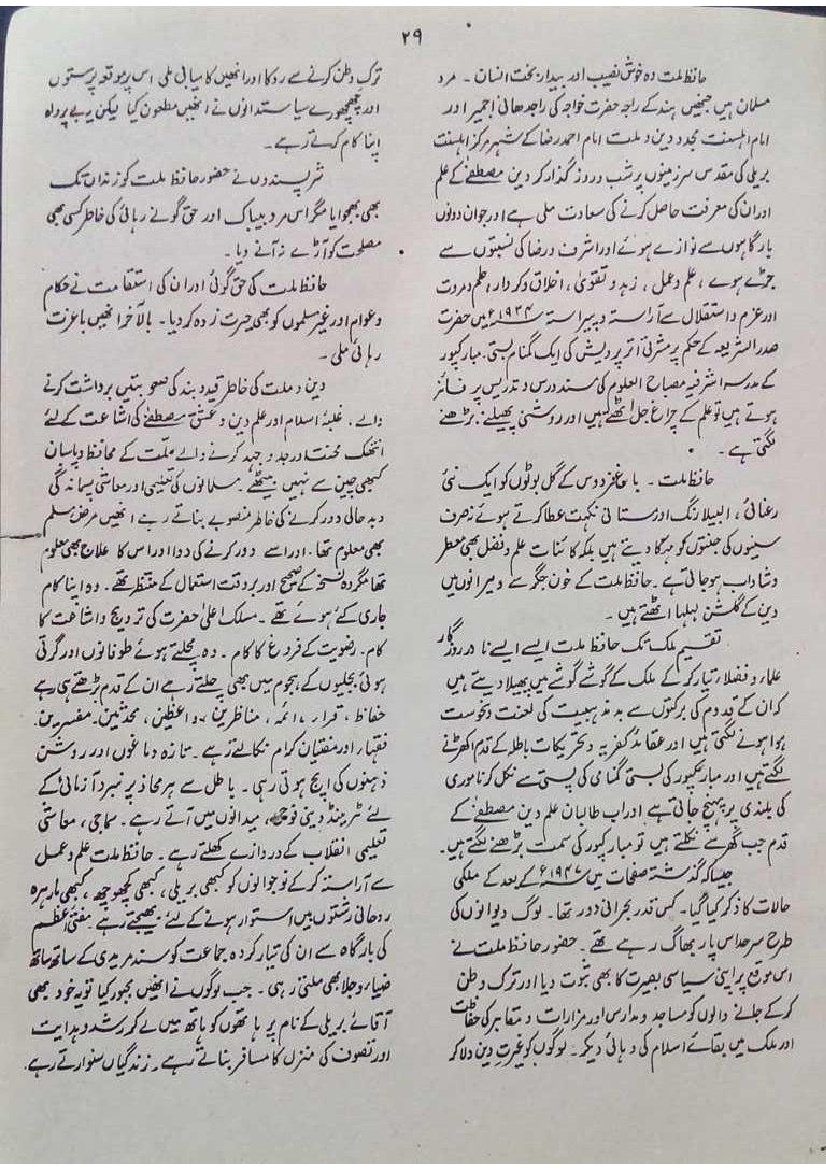 ۲۹
حافظ ملت وہ خوش نصیب اور بیدار بخت انسان ۔ مرد
مسلمان ہیں جنھیں ہند کے راجہ حضرت خواجہ کی راجدھانی اجمیر اور
امام اہلسنت مجدد دین و ملت امام احمد رضا کے شہر مرکز اہلسنت
بریلی کی مقدس سرزمینوں پر شب و روز گذار کر دین مصطفےٰ کے علم
اور ان کی معرفت حاصل کرنے کی سعادت ملی ہے اور جو ان دونوں
بارگاہوں سے نوازے ہوئے اور اشرف و رضا کی نسبتوں سے
جڑے ہوے ، علم و عمل ، زہد و تقویٰ ، اخلاق و کردار ، حلم و مروت
اور عزم و استقلال سے آراستہ و پیراستہ ۱۹۳۴ء میں حضرت
صدر الشریعہ کے حکم پر مشرقی اتر پردیش کی ایک گمنام بستی مبارکپور
کے مدرسہ اشرفیہ مصباح العلوم کی مسند درس و تدریس پر فائز
ہوتے ہیں تو علم کے چراغ جل اٹھتے ہیں اور روشنی پھیلنے بڑھنے
لگتی ہے ۔
حافظ ملت ۔ باغ فردوس کے گل بوٹوں کو ایک نئی
رعنائی ، البیلا رنگ اور مستانی نکہت عطا کرتے ہوئے نہ صرف
سینوں کی جنتوں کو مہکا دیتے ہیں بلکہ کائنات علم و فضل بھی معطر
و شاداب ہو جاتی ہے ۔ حافظ ملت کے خون جگر سے ویرانوں میں
دین کے گلشن لہلہا اٹھتے ہیں ۔
تقسیم ملک تک حافظ ملت ایسے ایسے نادر روزگار
علماء و فضلاء تیار کر کے ملک کے گوشے گوشے میں پھیلا دیتے ہیں
کہ ان کے قدوم کی برکتوں سے بد مذہبیت کی لعنت و نحوست
ہوا ہونے لگتی ہیں اور عقائد کفریہ و تحریکات باطلہ کے قدم اکھڑنے
لگتے ہیں اور مبارکپور کی بستی گمنامی کی پستی سے نکل کر ناموری
کی بلندی پر پہنچ جاتی ہے اور اب طالبان علم دین مصطفےٰ کے
قدم جب گھر سے نکلتے ہیں تو مبارکپور کی سمت بڑھنے لگتے ہیں۔
جیسا کہ گذشتہ صفحات میں ۱۹۴۷ء کے بعد کے ملکی
حالات کا ذکر کیا گیا ۔ کس قدر بحرانی دور تھا ۔ لوگ دیوانوں کی
طرح سرحد اس پار بھاگ رہے تھے ۔ حضور حافظ ملت نے
اس موقع پر اپنی سیاسی بصیرت کا بھی ثبوت دیا اور ترک وطن
کر کے جانے والوں کو مساجد و مدارس اور مزارات و مقابر کی حفاظت
اور ملک میں بقائے اسلام کی دہائی دیکر ۔ لوگوں کو غیرت دین دلا کر
ترک وطن کرنے سے روکا اور انھیں کامیابی ملی اس پر موقعہ پرستوں
اور چھچھورے سیاستدانوں نے انھیں مطعون کیا لیکن یہ بے پرواہ
اپنا کام کرتے رہے ۔
شر پسندوں نے حضور حافظ ملت کو زنداں تک
بھی بھجوایا مگر اس مرد بیباک اور حق گو نے رہائی کی خاطر کسی بھی
مصلحت کو آڑے نہ آنے دیا ۔
حافظ ملت کی حق گوئی اور ان کی استقامت نے حکام
و عوام اور غیر مسلموں کو بھی حیرت زدہ کر دیا ۔ بالآخر انھیں باعزت
رہائی ملی ۔
دین و ملت کی خاطر قید و بند کی صعوبتیں برداشت کرنے
والے ۔ غلبۂ اسلام اور علم دین و عشق مصطفےٰ کی اشاعت کے لئے
انتھک محنت اور جد و جہد کرنے والے ملت کے محافظ و پاسبان
کبھی چین سے نہیں بیٹھے ۔ مسلمانوں کی تعلیمی اور معاشی پسماندگی
و بدحالی دور کرنے کی خاطر منصوبے بناتے رہے انھیں مرض مسلم
بھی معلوم تھا ۔ اور اسے دور کرنے کی دوا اور اس کا علاج بھی معلوم
تھا مگر وہ نسخہ کے صحیح اور بر وقت استعمال کے منتظر تھے ۔ وہ اپنا کام
جاری کئے ہوئے تھے ۔ مسلک اعلیٰ حضرت کی ترویج و اشاعت کا
کام ۔ رضویت کے فروغ کا کام ۔ وہ مچلتے ہوئے طوفانوں اور گرتی
ہوئی بجلیوں کے ہجوم میں بھی چلتے رہے ان کے قدم بڑھتے ہی رہے
حفاظ ، قراء ، ائمہ ، مناظرین ، واعظین ، محدثین ۔ مفسرین ۔
فقہاء اور مفتیان کرام نکالتے رہے ۔ تازہ دماغوں اور روشن
ذہنوں کی اپج ہوتی رہی ۔ باطل سے ہر محاذ پر نبرد آزمائی کے
لئے ٹرینڈ دینی فوجیں میدانوں میں آتے رہے ۔ سماجی ، معاشی
تعلیمی انقلاب کے دروازے کھلتے رہے ۔ حافظ ملت علم و عمل
سے آراستہ کر کے نوجوانوں کو کبھی بریلی ، کبھی کچھوچھہ ، کبھی مارہرہ
روحانی رشتوں میں استوار ہونے کے لئے بھیجتے رہے ۔ مفتی اعظم
کی بارگاہ سے ان کی تیار کردہ جماعت کو سند مریدی کے ساتھ ساتھ
ضیاء و جلا بھی ملتی رہی ۔ جب لوگوں نے انھیں مجبور کیا تو یہ خود بھی
آقائے بریلی کے نام پر ہاتھوں کو ہاتھ میں لے کر رشد و ہدایت
اور تصوف کی منزل کا مسافر بناتے رہے ۔ زندگیاں سنوارتے رہے۔